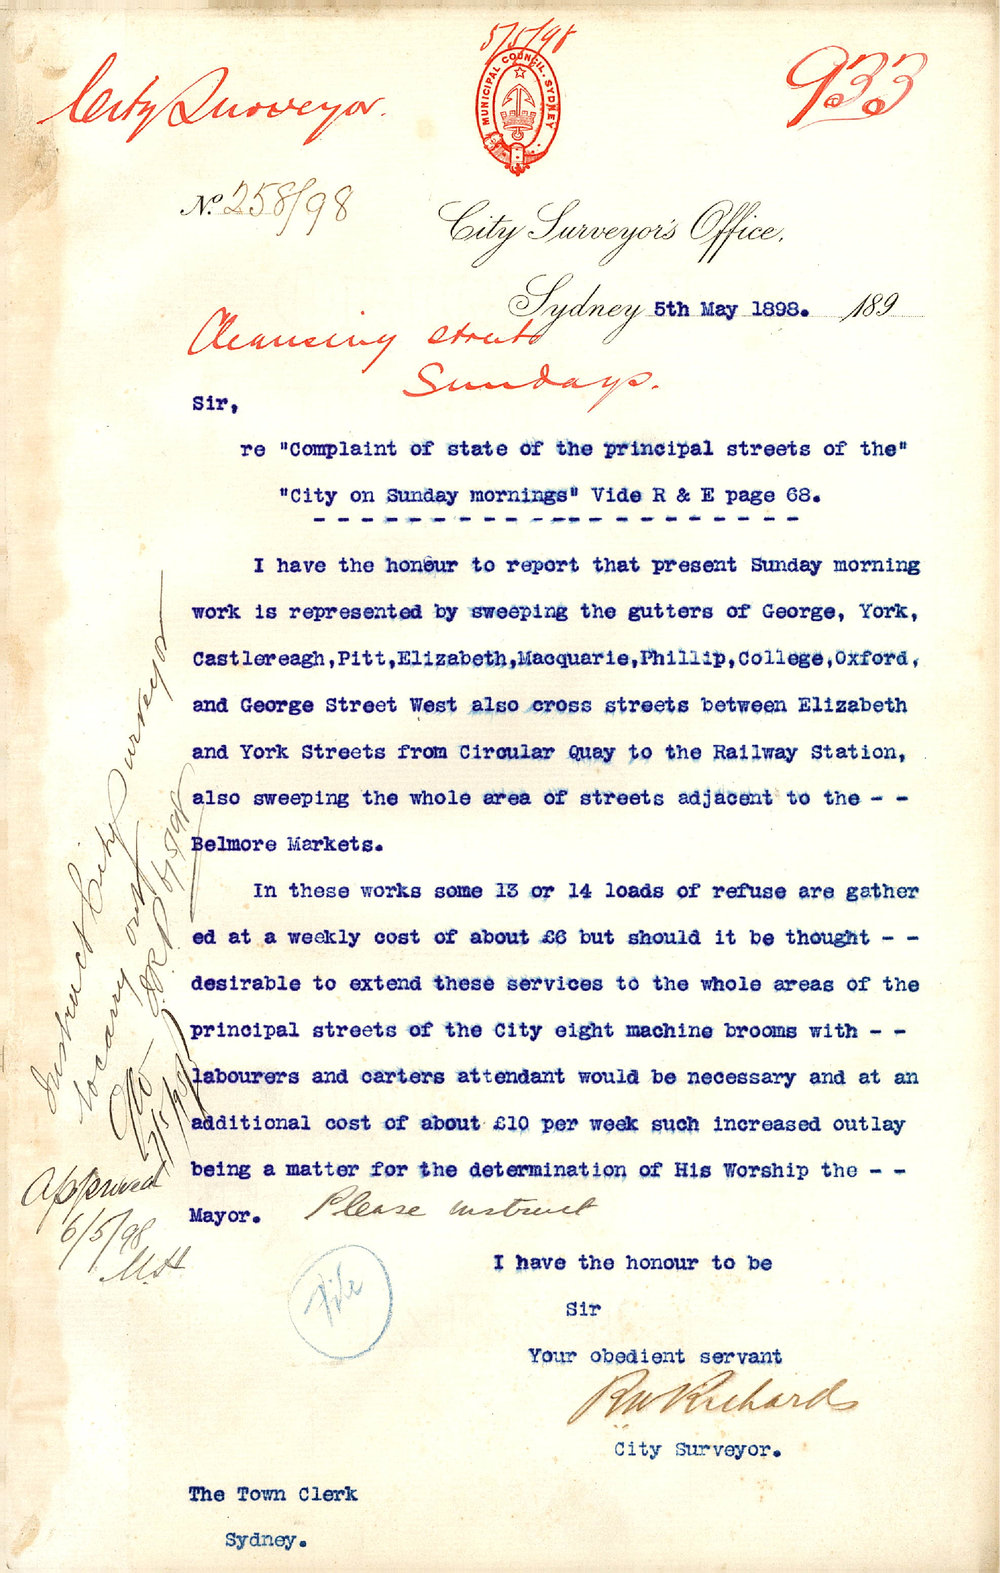 5/5/98
MUNICIPAL COUNCIL. SYDNEY
City Surveyor.
933
No. 258/98
City Surveyor's Office,
Sydney 5th May 1898. 189
Cleansing streets
Sundays.
Sir,
re "Complaint of state of the principal streets of the"
"City on Sunday mornings" Vide R & E page 68.
- - - - - - - - - - - - - - - - - - - - -
I have the honour to report that present Sunday morning
work is represented by sweeping the gutters of George, York,
Castlereagh,Pitt,Elizabeth,Macquarie,Phillip,College,Oxford,
and George Street West also cross streets between Elizabeth
and York Streets from Circular Quay to the Railway Station,
also sweeping the whole area of streets adjacent to the - -
Belmore Markets.
In these works some 13 or 14 loads of refuse are gather
ed at a weekly cost of about £6 but should it be thought - -
desirable to extend these services to the whole areas of the
principal streets of the City eight machine brooms with - -
labourers and carters attendant would be necessary and at an
additional cost of about £10 per week such increased outlay
being a matter for the determination of His Worship the - -
Mayor. Please instruct
I have the honour to be
Sir
Your obedient servant
RW Richards
City Surveyor.
The Town Clerk
Sydney.
File
Instruct City Surveyor
to carry out
6/5/98
Approved
6/5/98
M.H